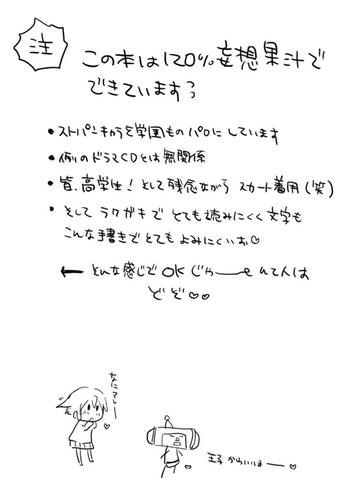 注
この本は120%妄想果汁で
できていますっ
・ストパンキャラを学園ものパロにしています
・例のドラマCDとは無関係
・皆、高学生！そして残念ながら スカート着用(笑)
・そして ラクガキで とても読みにくく文字も
こんな手書きでとてもよみにくいお♡
← そんな感じで OK じゃーーん て人は
どぞ♡♡
なにてしー♡
王子 かわいいよーー♡